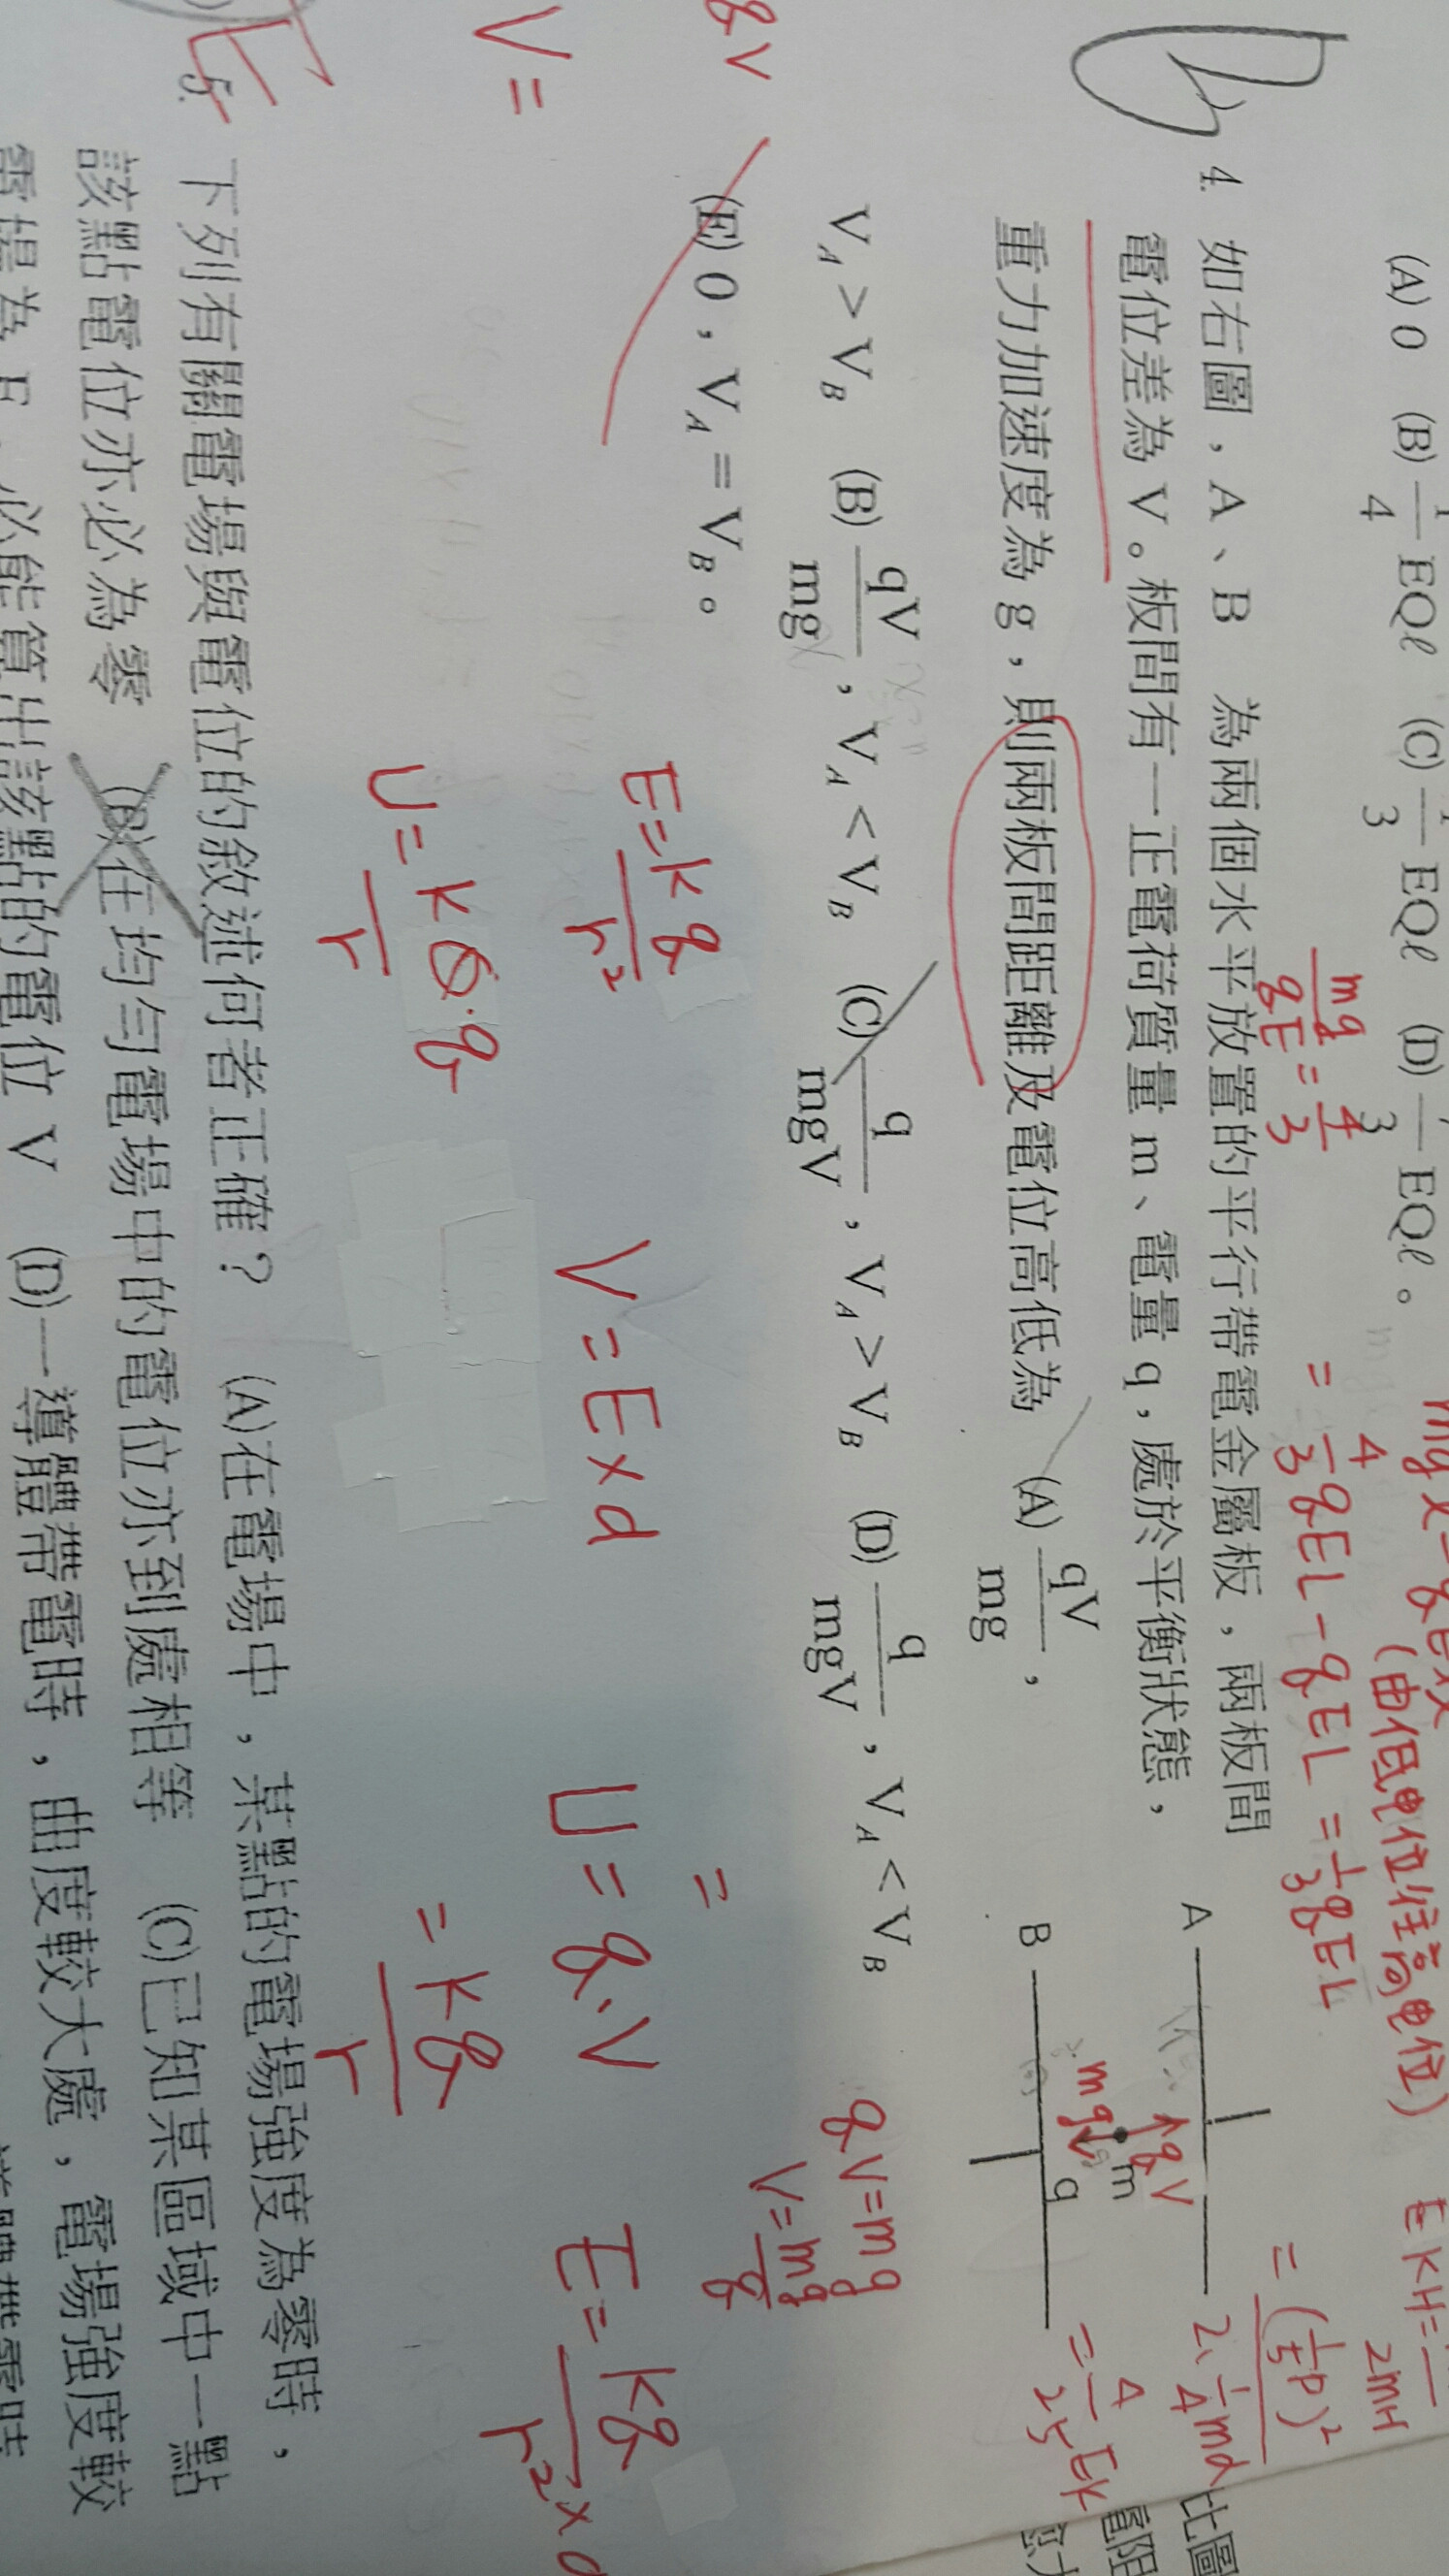 (A) 0 (B) 1/4 EQℓ (C) 1/3 EQℓ (D) /3 EQℓ。
mg/qE = 4/3
= 4/3 qEL - qEL = 1/3 qEL
(由低电位往高电位)
4. 如右圖，A、B 為兩個水平放置的平行帶電金屬板，兩板間
電位差為 V。板間有一正電荷質量 m、電量 q，處於平衡狀態，
重力加速度為 g，則兩板間距離及電位高低為 (A) qV/mg，
V_A > V_B (B) qV/mg，V_A < V_B (C) q/mgV，V_A > V_B (D) q/mgV，V_A < V_B
(E) 0，V_A = V_B。
A
qV
m
mg
q
B
EKH =
2mH
= (1/5 P)²
2·1/4 md
= 4/25 EK
qV = mg
V = mg/q
qV
V =
E = k q/r²
V = E × d
U = q·V
=
E = kq/r² × d
U = k Q·q/r
= k q/r
E
5. 下列有關電場與電位的敘述何者正確？ (A)在電場中，某點的電場強度為零時，
該點電位亦必為零 (B)在均勻電場中的電位亦到處相等 (C)已知某區域中一點
電場為 E，必能算出該點的電位 V (D)一導體帶電時，曲度較大處，電場強度較
比圖
電阻